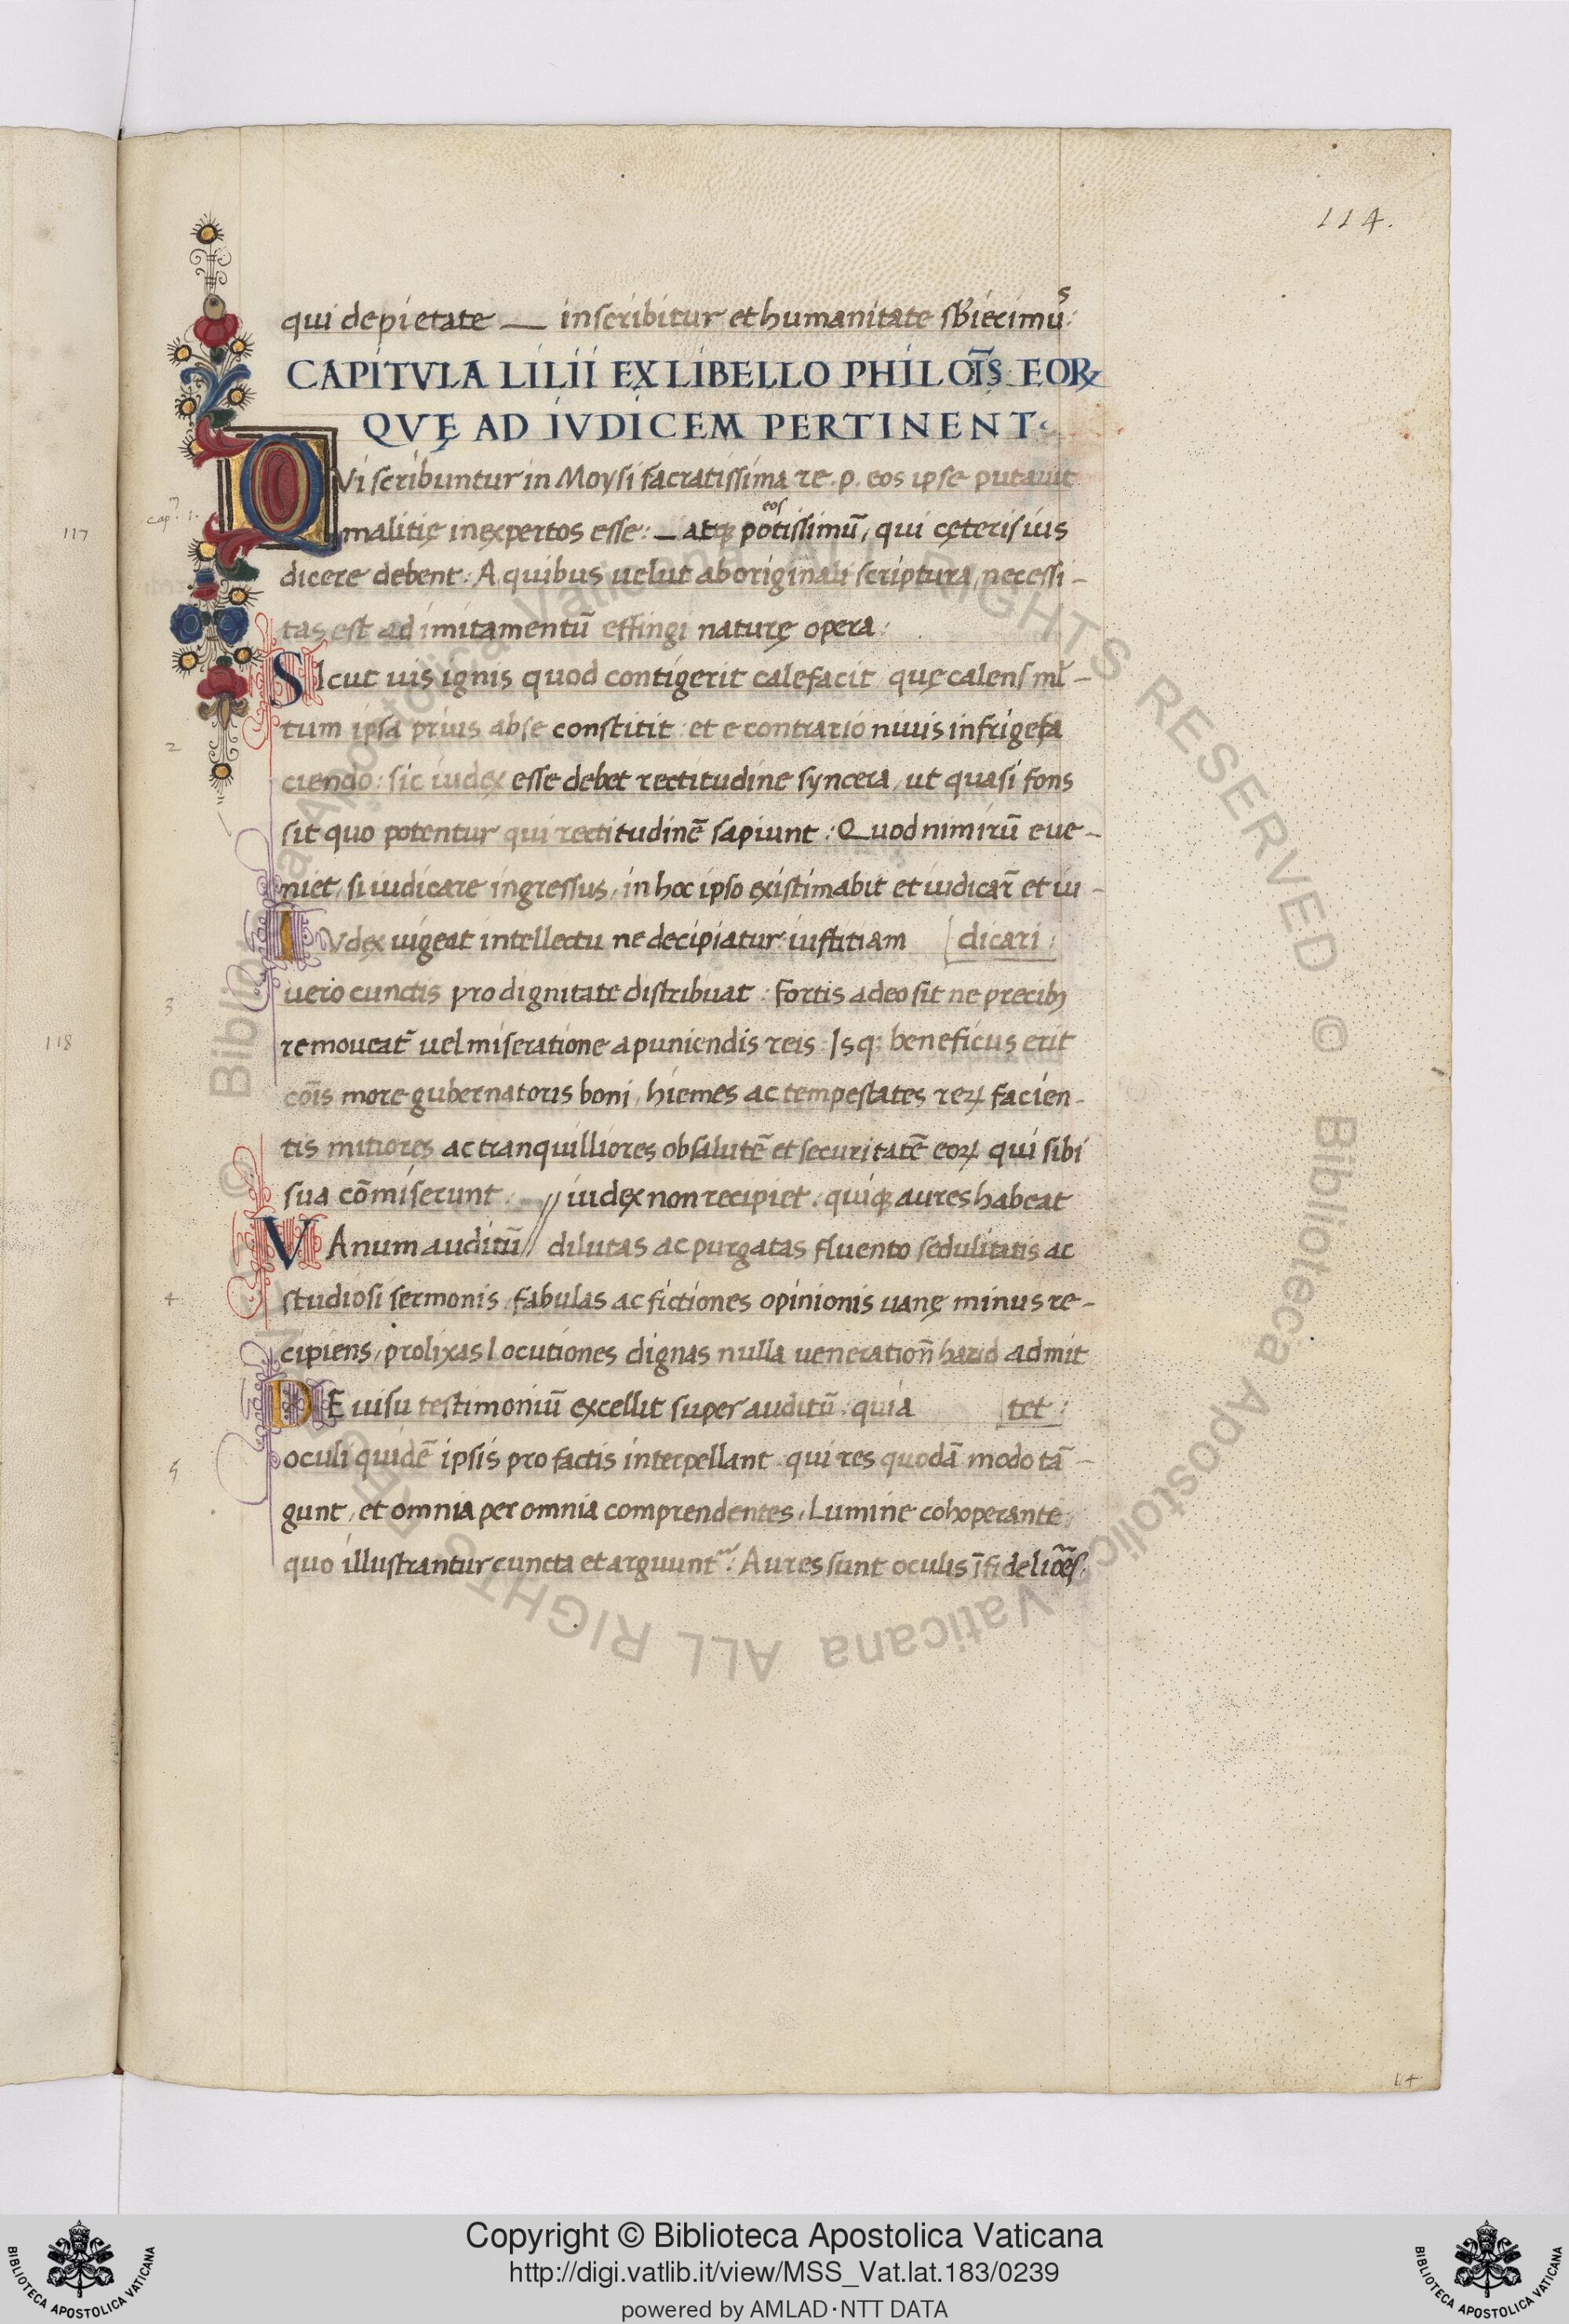 114.
qui de pietate — inscribitur et humanitate sb̄iecimus:
CAPITVLA LILII EX LIBELLO PHILOĪS EORꝝ
QVĘ AD IVDICEM PERTINENT
QVi scribuntur in Moysi sacratissima re. p. eos ipse putauit
cap. 1.
117
malitię inexpertos esse: — atqꝫ eos potissimū, qui cęteris ius
dicere debent: A quibus uelut ab originali scriptura, necessi-
tas est ad imitamentū effingi naturę opera:
SIcut uis ignis quod contigerit calefacit quę calens ml̄-
2
tum ipsa prius ab se constitit: et e contrario niuis infrigefa
ciendo: sic iudex esse debet rectitudine syncera, ut quasi fons
sit quo potentur qui rectitudinē sapiunt: Quod nimirū eue-
niet, si iudicare ingressus, in hoc ipso existimabit et iudicar̄ et iu-
IVdex uigeat intellectu ne decipiatur: iustitiam [dicari:
3
uero cunctis pro dignitate distribuat: fortis adeo sit ne precibꝫ
118
remoueat᷑ uel miseratione a puniendis reis: Isqꝫ beneficus erit
cōis more gubernatoris boni, hiemes ac tempestates reꝝ facien-
tis mitiores ac tranquilliores ob salutē et securitatē eoꝝ qui sibi
sua cōmiserunt. // iudex non recipiet: quiqꝫ aures habeat
VAnum auditū // dilutas ac purgatas fluento sedulitatis ac
4
studiosi sermonis, fabulas ac fictiones opinionis uanę minus re-
cipiens, prolixas locutiones dignas nulla ueneration̄ haud admit
DE uisu testimoniū excellit super auditū: quia [tet:
5
oculi quidē ipsis pro factis interpellant: qui res quodā modo tā-
gunt, et omnia per omnia comprendentes, Lumine cohoperante,
quo illustrantur cuncta et arguunt᷑: Aures sunt oculis īfideliōes:
114
© Biblioteca Apostolica Vaticana ALL RIGHTS RESERVED © Biblioteca Apostolica Vaticana ALL RIGHTS RESERVED
Copyright © Biblioteca Apostolica Vaticana
http://digi.vatlib.it/view/MSS_Vat.lat.183/0239
powered by AMLAD·NTT DATA
BIBLIOTECA APOSTOLICA VATICANA
BIBLIOTECA APOSTOLICA VATICANA